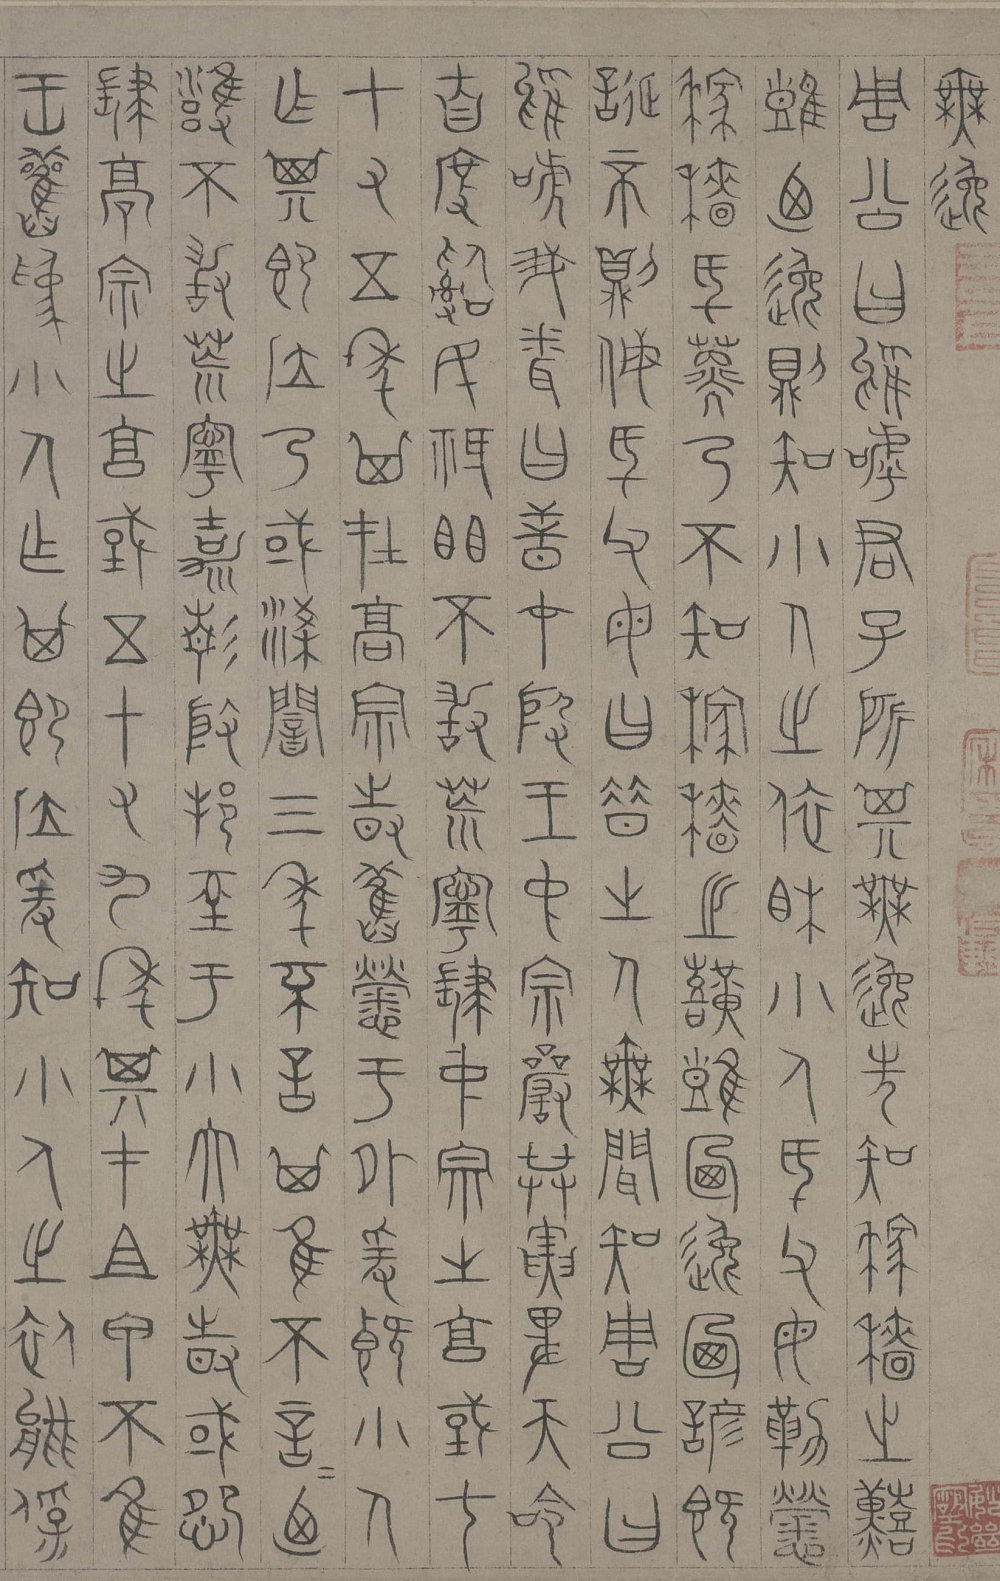 無逸
周公曰嗚呼君子所其無逸先知稼穡之艱
難乃逸則知小人之依相小人厥父母勤勞
稼穡厥子乃不知稼穡之艱難乃逸乃諺既
誕否則侮厥父母曰昔之人無聞知周公曰
嗚呼我聞曰昔在殷王中宗嚴恭寅畏天命
自度治民祗懼不敢荒寧肆中宗之享國七
十有五年其在高宗時舊勞于外爰暨小人
作其即位乃或亮陰三年不言其惟不言=乃
雍不敢荒寧嘉靖殷邦至于小大無時或怨
肆高宗之享國五十有九年其在祖甲不惟
王舊爲小人作其即位爰知小人之依能保